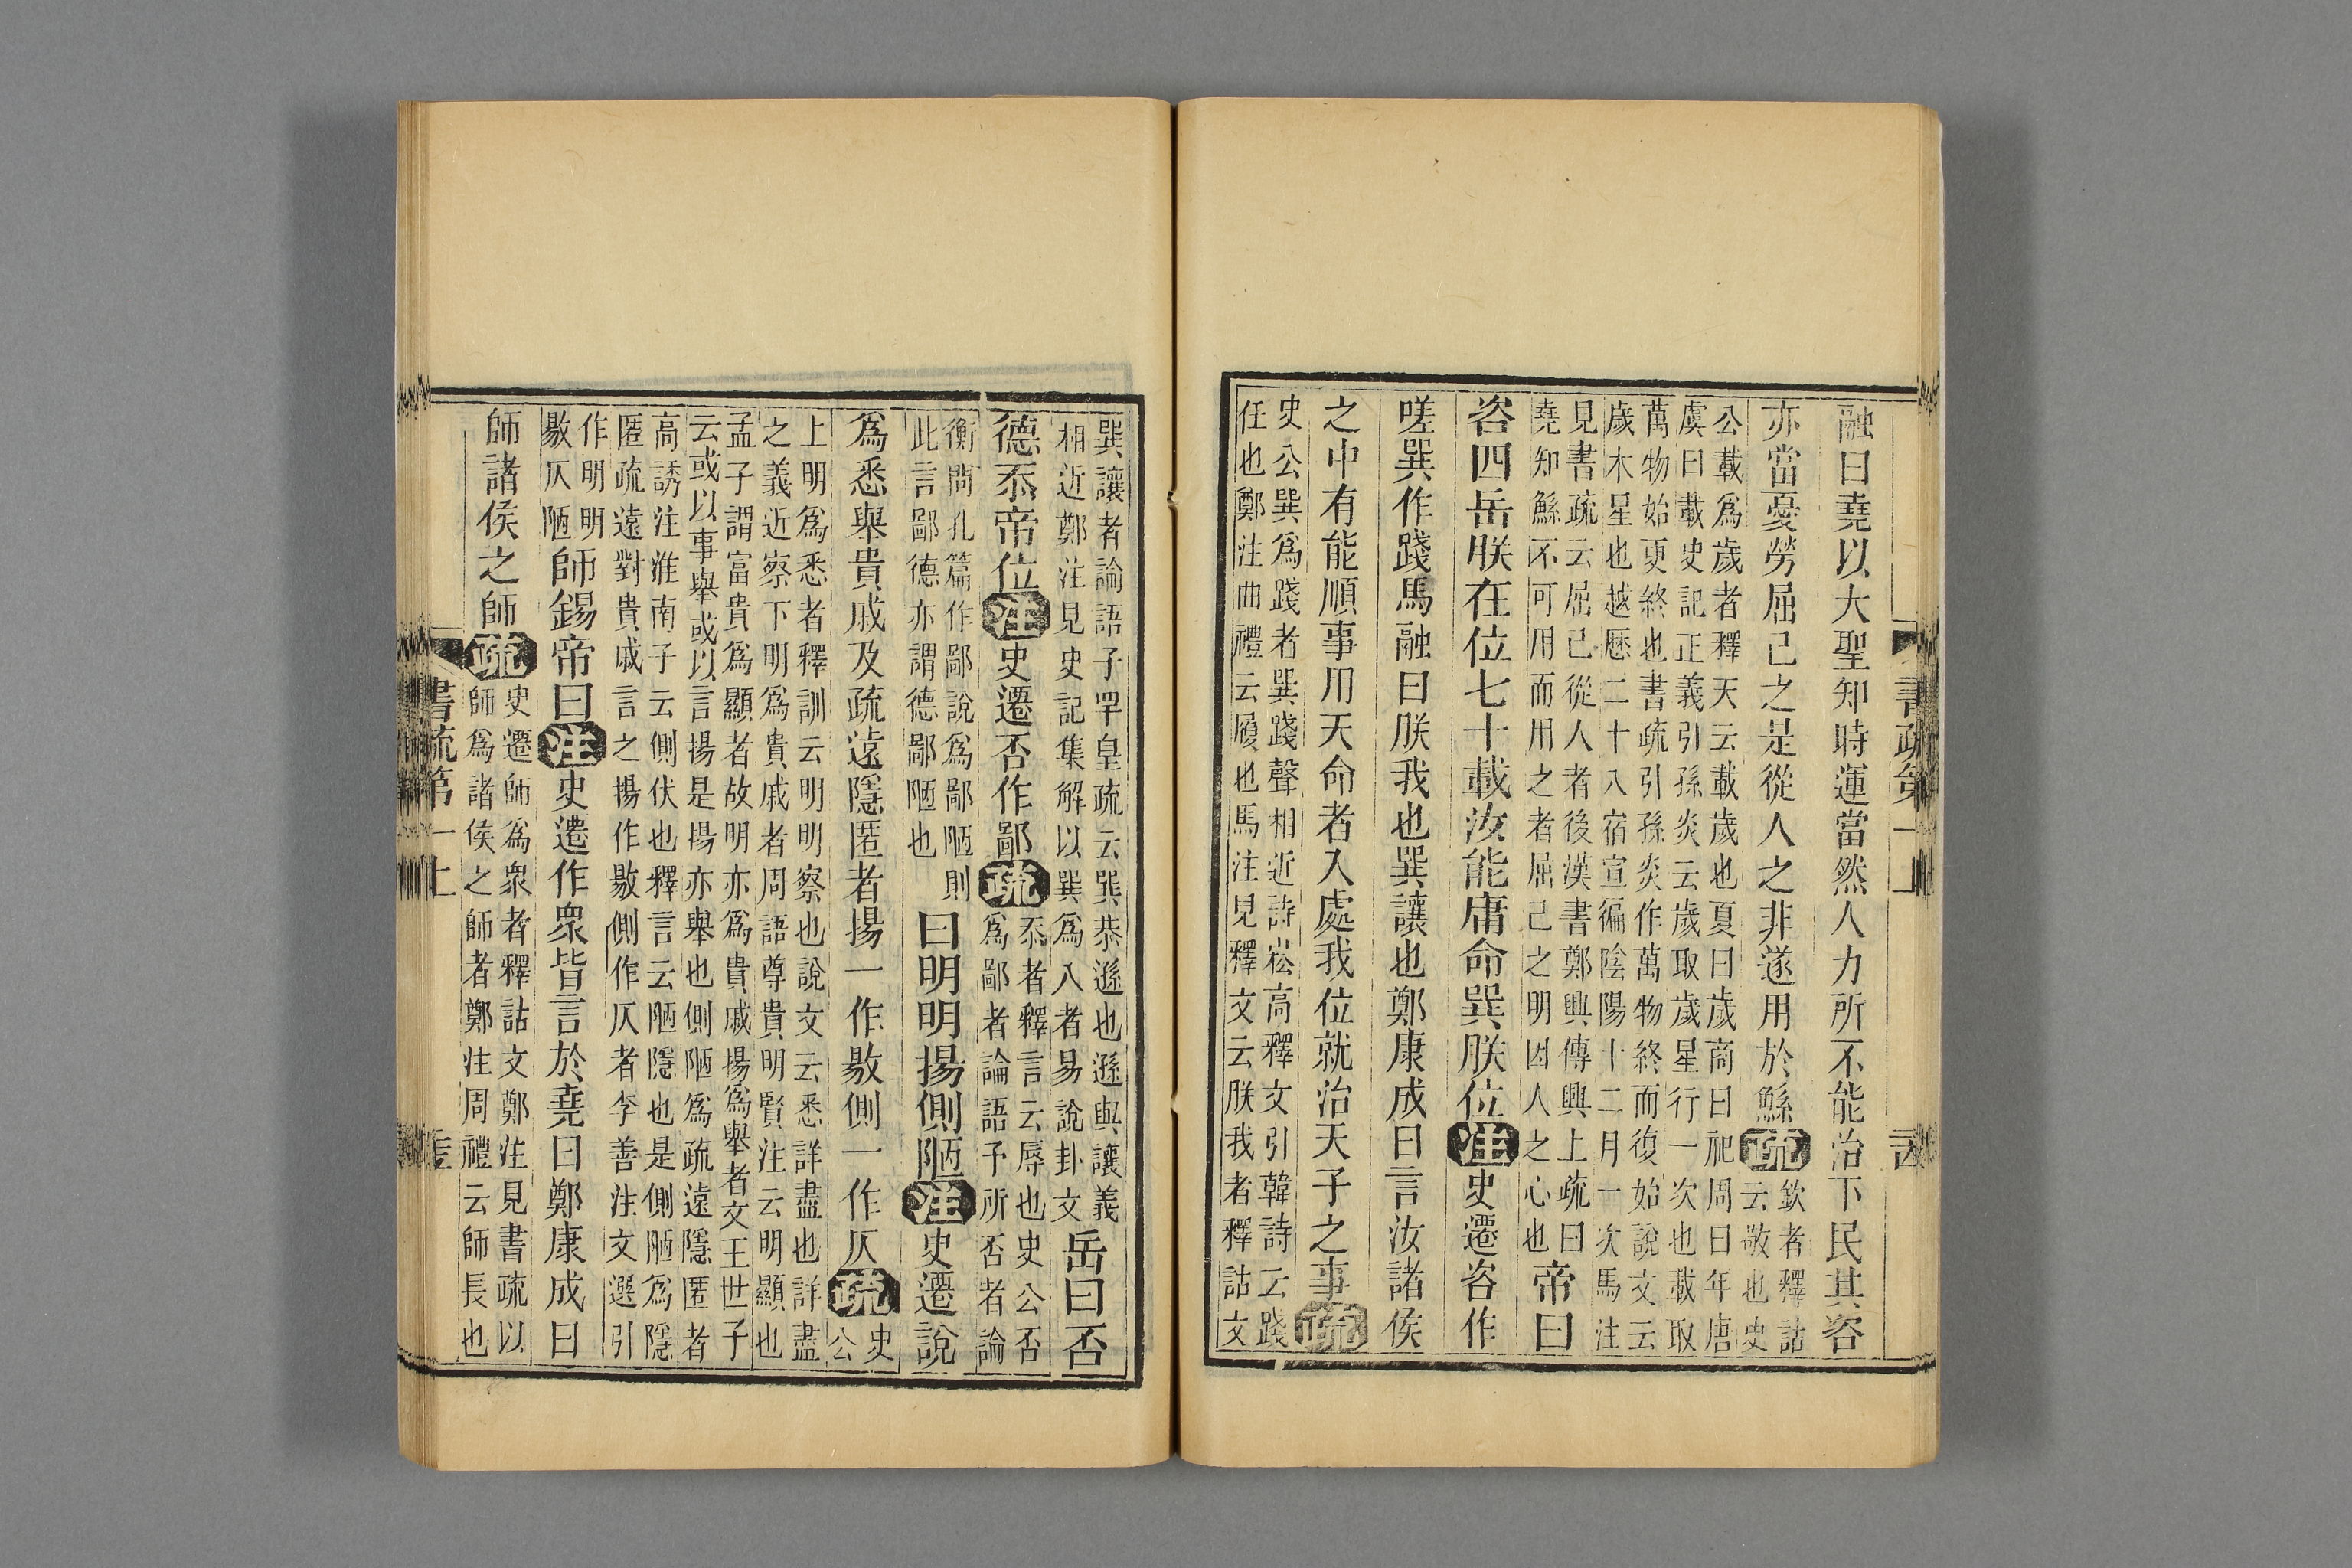 融曰堯以大聖知時運當然人力所不能治下民其咨
亦當憂勞屈己之是從人之非遂用於鯀疏
欽者釋詁
云敬也史
公載爲歲者釋天云載歲也夏曰歲商曰祀周曰年唐
虞曰載史記正義引孫炎云歲取歲星行一次也載取
萬物始更終也書疏引孫炎作萬物終而復始說文云
歲木星也越歷二十八宿宣徧陰陽十二月一次馬注
見書疏云屈己從人者後漢書鄭興傳興上疏曰
堯知鯀不可用而用之者屈己之明因人之心也
帝曰
咨四岳朕在位七十載汝能庸命巽朕位注史遷咨作
嗟巽作踐馬融曰朕我也巽讓也鄭康成曰言汝諸侯
之中有能順事用天命者入處我位就治天子之事疏
史公巽爲踐者巽踐聲相近詩崧高釋文引韓詩云踐
任也鄭注曲禮云履也馬注見釋文云朕我者釋詁文
書疏第一上
巽讓者論語子罕皇疏云巽恭遜也遜與讓義
相近鄭注見史記集解以巽爲入者易說卦文
岳曰否
德忝帝位注史遷否作鄙疏
忝者釋言云辱也史公否
爲鄙者論語予所否者論
衡問孔篇作鄙說爲鄙陋則
此言鄙德亦謂德鄙陋也
曰明明揚側陋注史遷說
爲悉舉貴戚及疏遠隱匿者揚一作敭側一作仄疏
史
公
上明爲悉者釋訓云明明察也說文云悉詳盡也詳盡
之義近察下明爲貴戚者周語尊貴明賢注云明顯也
孟子謂富貴爲顯者故明亦爲貴戚揚爲舉者文王世子
云或以事舉或以言揚是揚亦舉也側陋爲疏遠隱匿者
高誘注淮南子云側伏也釋言云陋隱也是側陋爲隱
匿疏遠對貴戚言之揚作敭側作仄者李善注文選引
作明明
敭仄陋
師錫帝曰注史遷作衆皆言於堯曰鄭康成曰
師諸侯之師疏
史遷師爲衆者釋詁文鄭注見書疏以
師爲諸侯之師者鄭注周禮云師長也
書疏第一上